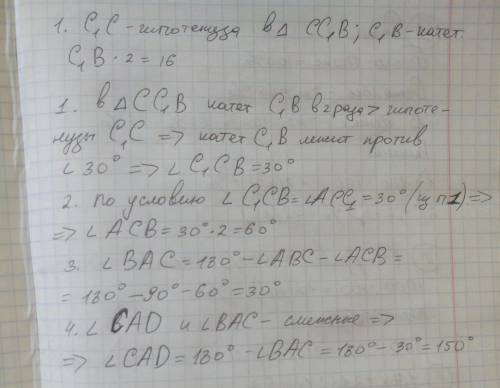 1. C₁C - гипотенуза в △ CC₁B; C₁B - катет.
C₁B · 2 = 16
1. в △ CC₁B катет C₁B в 2 раза > гипоте-
нузы C₁C => катет C₁B лежит против
∠ 30° => ∠ C₁CB = 30°
2. по условию ∠ C₁CB = ∠ACC₁ = 30° (из п 1) =>
=> ∠ ACB = 30° · 2 = 60°
3. ∠ BAC = 180° - ∠ABC - ∠ACB =
= 180° - 90° - 60° = 30°
4. ∠ CAD и ∠BAC - смежные =>
=> ∠ CAD = 180° - ∠BAC = 180° - 30° = 150°